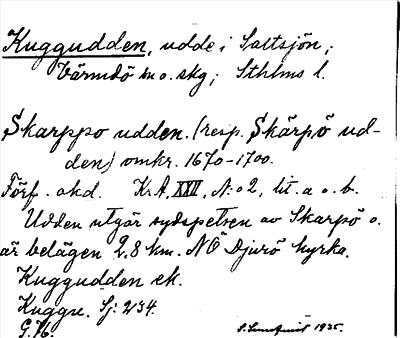 Kuggudden, udde i Saltsjön,
Värmdö sn o. skg; Sthlms l.
Skarppo udden. (resp. Skärpö ud-
den) omkr. 1670-1700.
Förf. okd. Kr.A, XXII, N:o 2, lit. a o. b.
Udden utgör sydspetsen av Skarpö o.
är belägen 2,8 km. NO Djurö kyrka.
Kuggudden ek.
Kuggre. Sj: 234.
G.H. S. Lundquist 1935.